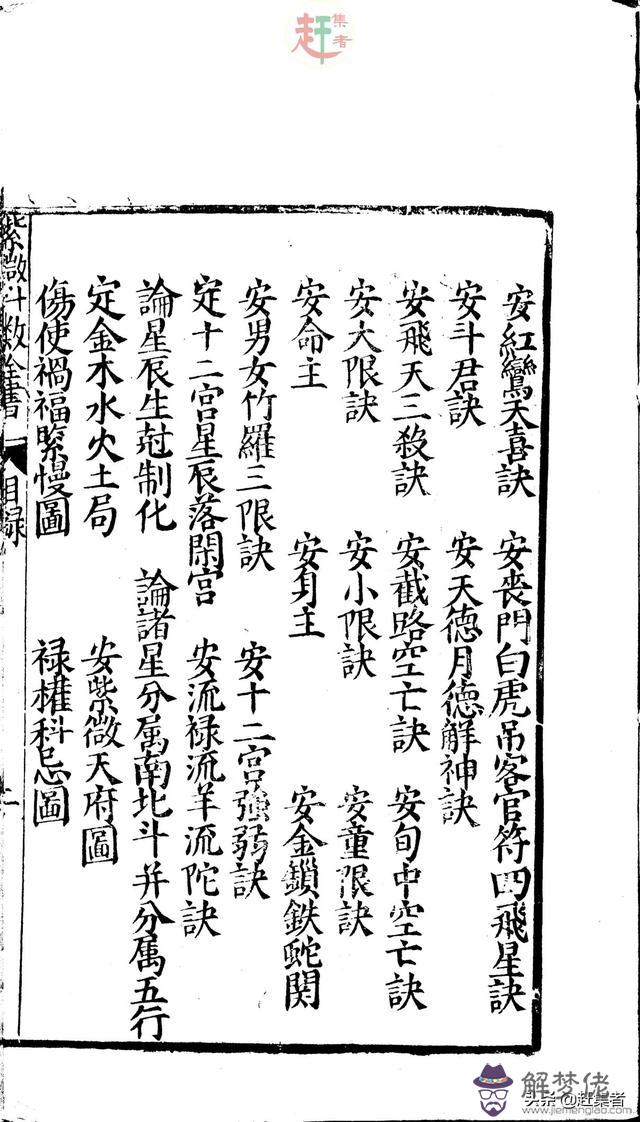 赶集者
安紅鸞天喜訣 安喪門白虎吊客官符四飛星訣
安斗君訣 安天德月德解神訣
安飛天三殺訣 安截路空亡訣 安旬中空亡訣
安大限訣 安小限訣 安童限訣
安命主 安身主 安金鎖鉄蛇関
安男女竹羅三限訣 安十二宮強弱訣
定十二宮星辰落閑宮 安流禄流羊流陀訣
論星辰生尅制化 論諸星分属南北斗并分属五行
定金木水火土局 安紫微天府圖
傷使禍福緊慢圖 禄權科忌圖
紫微斗数全書 目録 一
解梦佬
头杀@赶集者
www.jiemenglao.com